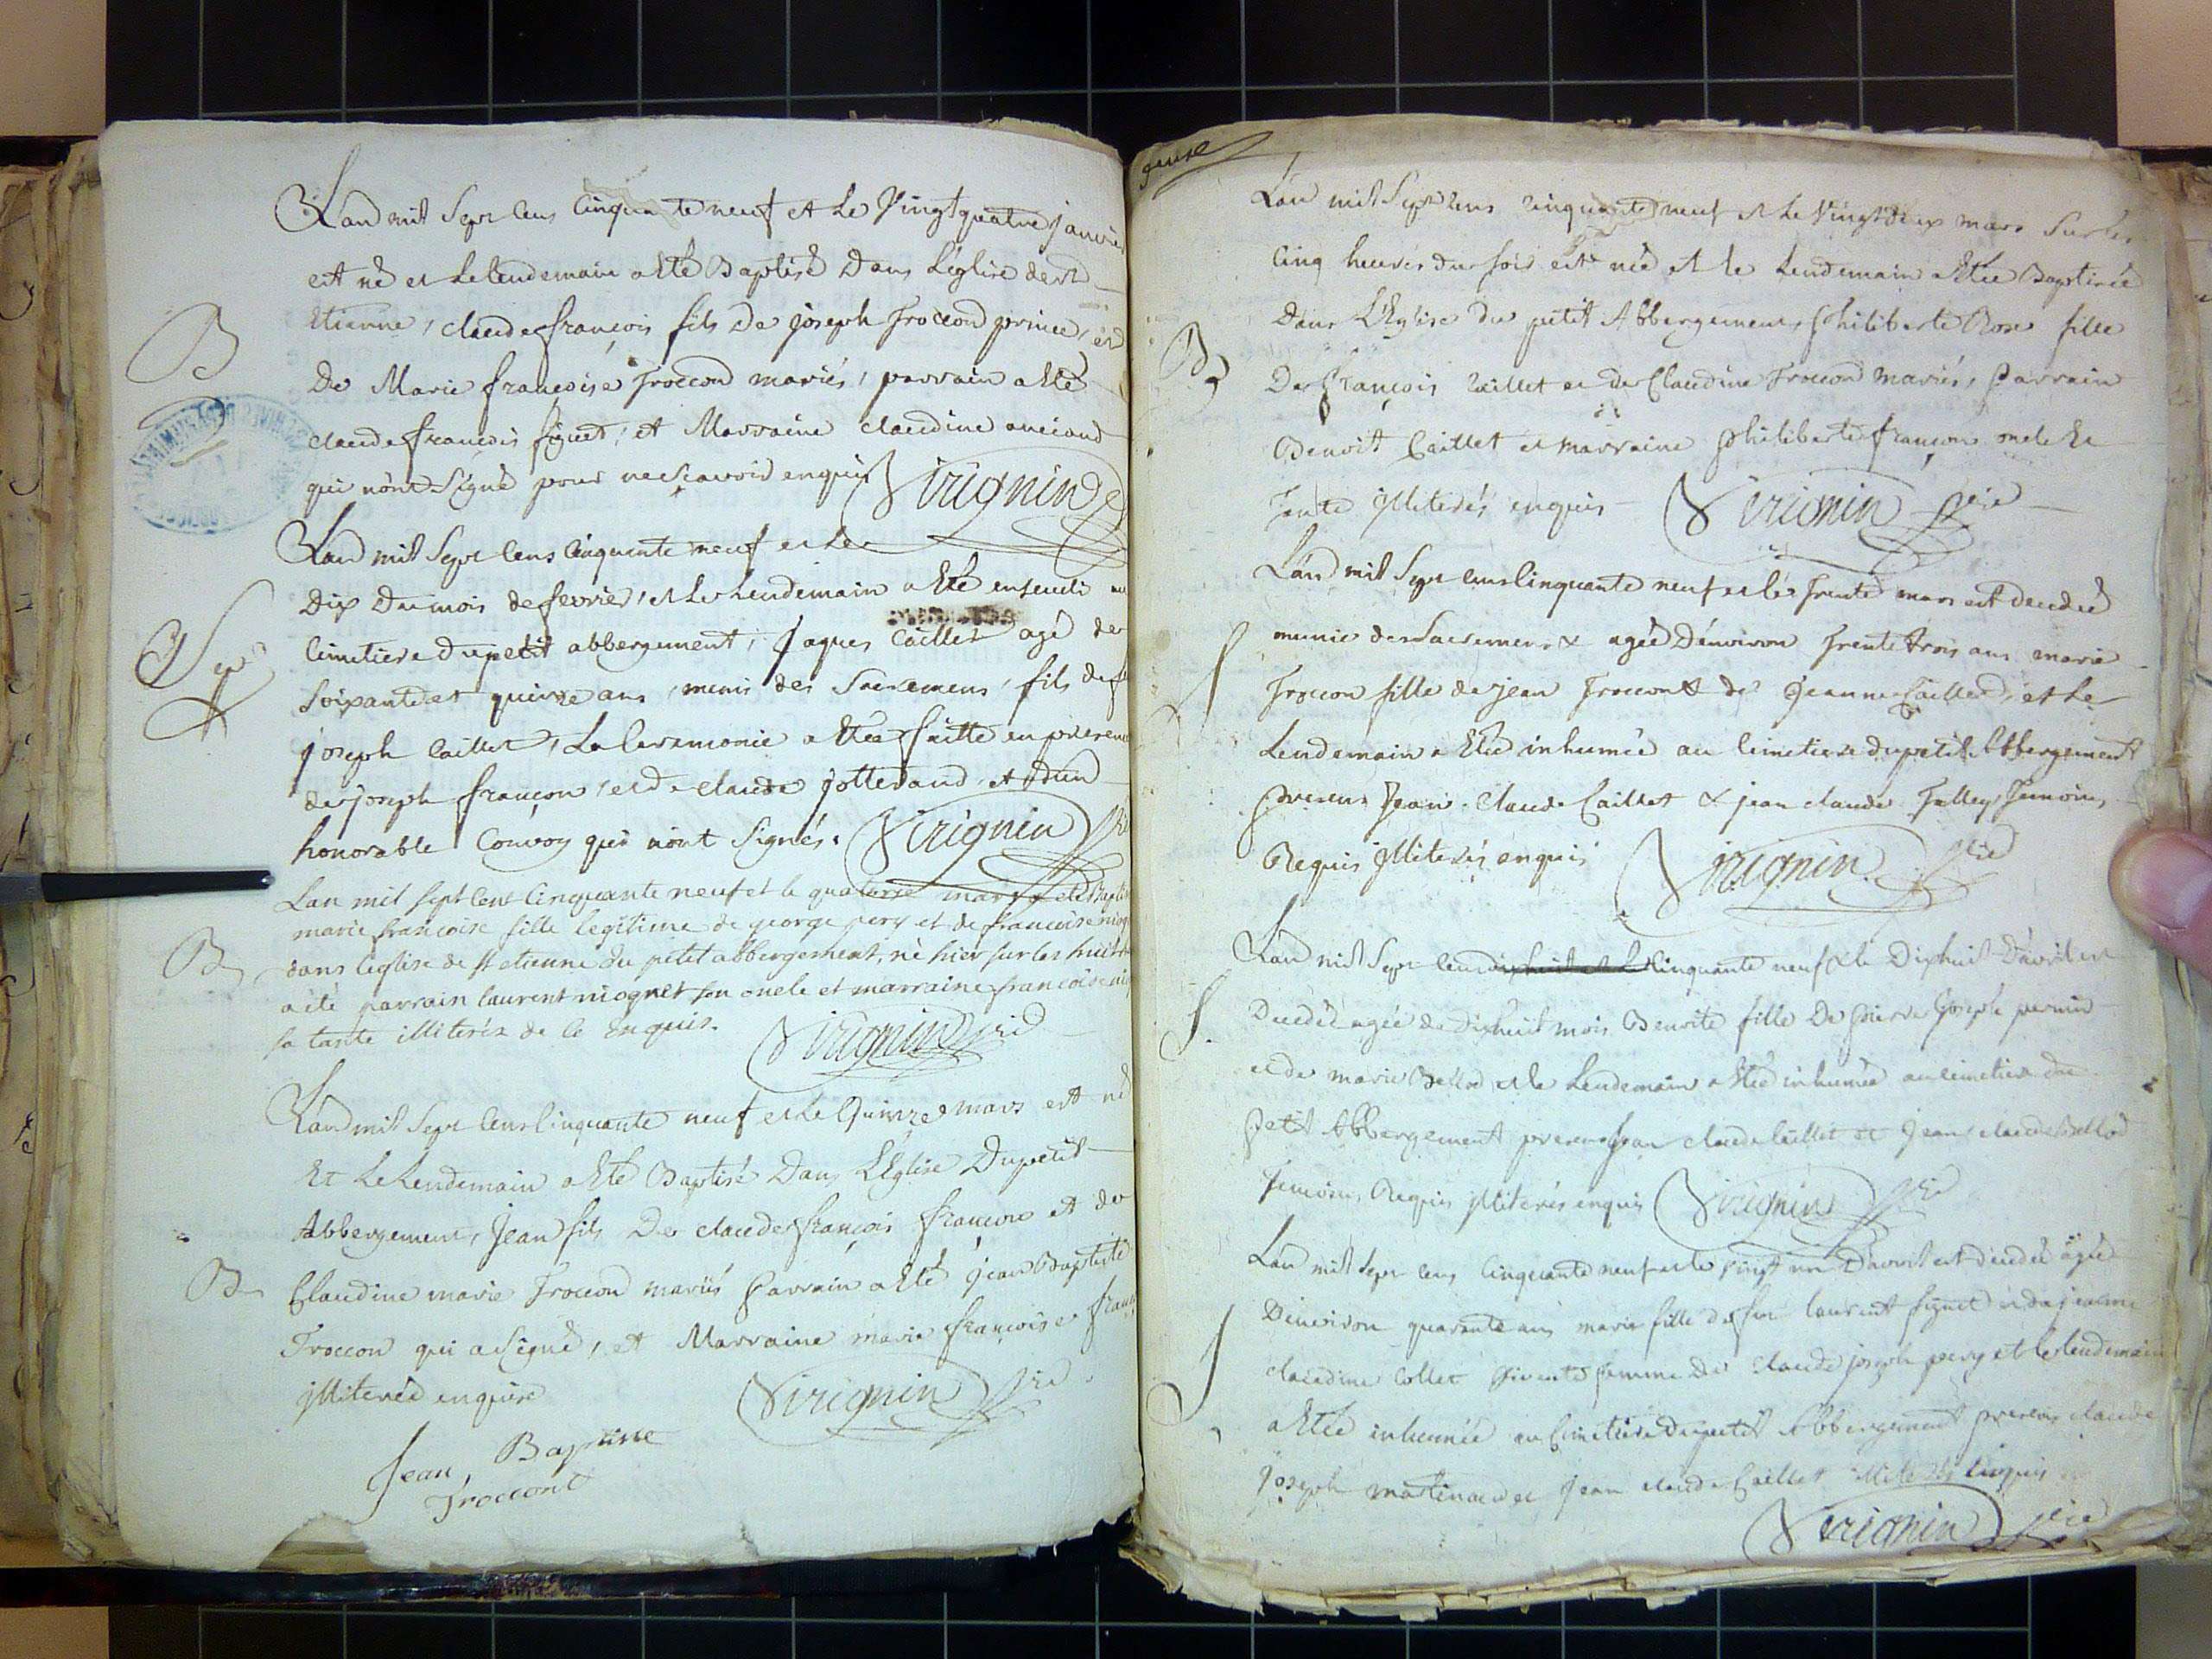 B
Lan mil Sept Cens Cinquante neuf et Le Vingt quatre janvier
est né et Le lendemain a Eté Baptisé Dans L'église de St
Etienne, claude françois fils De joseph Troccond prince, et
De Marie françoise Troccond mariés, parrain a Eté
claude françois figuet, et Marraine claudine anciand
qui n'ont Signé pour ne Scavoir enquis Virignin
Sep
Lan mil Sept Cens Cinquante neuf et Le
Dix Du mois de fevrier, et Le Lendemain a Eté enseveli au
Cimetiere du petit abbergement, Jaques Caillet agé de
Soixante et quinze ans, munis des Sacremens, fils de f
joseph Caillet, La Ceremonie a Etée faitte en presen
de joseph françon, et de claude jotterand, et d'un
honorable Convoy qui n'ont Signés. Virignin vic
B
Lan mil sept Cent Cinquante neuf et le quatorze mars a eté
marie francoise fille legitime de george pery et de francoise
dans l'eglise de st etienne du petit abbergement, né hier sur les huit
a été parrain laurent niogret son oncle et marraine francoise
sa tante illiterés de ce Enquis. Virignin vic
B
Lan mil Sept Cens Cinquante neuf et Le Quinze mars est né
Et Le Lendemain a Eté Baptisé Dans L'Eglise Du petit
Abbergement, Jean fils De claude françois françon et de
Claudine marie Troccond mariés Parrain a Eté Jean Baptiste
Troccon qui a Signé, et Marraine marie françoise
illiterée enquise Virignin vic
Jean Baptiste
Troccont
Lan mil Sept Cens Cinquante neuf et Le Vingt deux mars Sur les
Cinq heures du soir est née et le Lendemain a Etée Baptisée
B
Dans L'Eglise Du petit Abbergement, Philiberte Rose fille
De François Caillet et de Claudine Troccond mariés, Parrain
Benoit Caillet et marraine Philiberte françon oncle Et
Tante illiterés enquis Virignin vic
S
Lan mil Sept Cens Cinquante neuf et le Trente mars est decedée
munie des Sacremens & agée D'environ Trente trois ans marie
Troccon fille de jean Troccon & de Jeanne Caillet, et Le
Lendemain a Eté inhumée au Cimetiere du petit Abbergement
presens Jean Claude Caillet & jean claude Temoins
Requis illiterés enquis Virignin vic
S.
Lan mil Sept Cens Cinquante neuf & le Dixhuit D'avril est
Decedée agée de Dixhuit mois Benoite fille De Pierre Joseph
et de marie Bellod et le Lendemain a Eté inhumée au cimetiere du
Petit Abbergement presens Jean claude Caillet et Jean claude Bellod
Temoins Requis illiterés enquis Virignin vic
S
Lan mil Sept Cens Cinquante neuf et le vingt un D'avril est decedée agée
D'environ quarante ans marie fille de feu laurent figuet et de jeanne
claudine Collet vivente femme De Claude joseph pery et le lendemain
a Etée inhumée au Cimetiere du petit Abbergement presens claude
Joseph martinand et Jean claude Caillet illiterés Enquis
Virignin vic